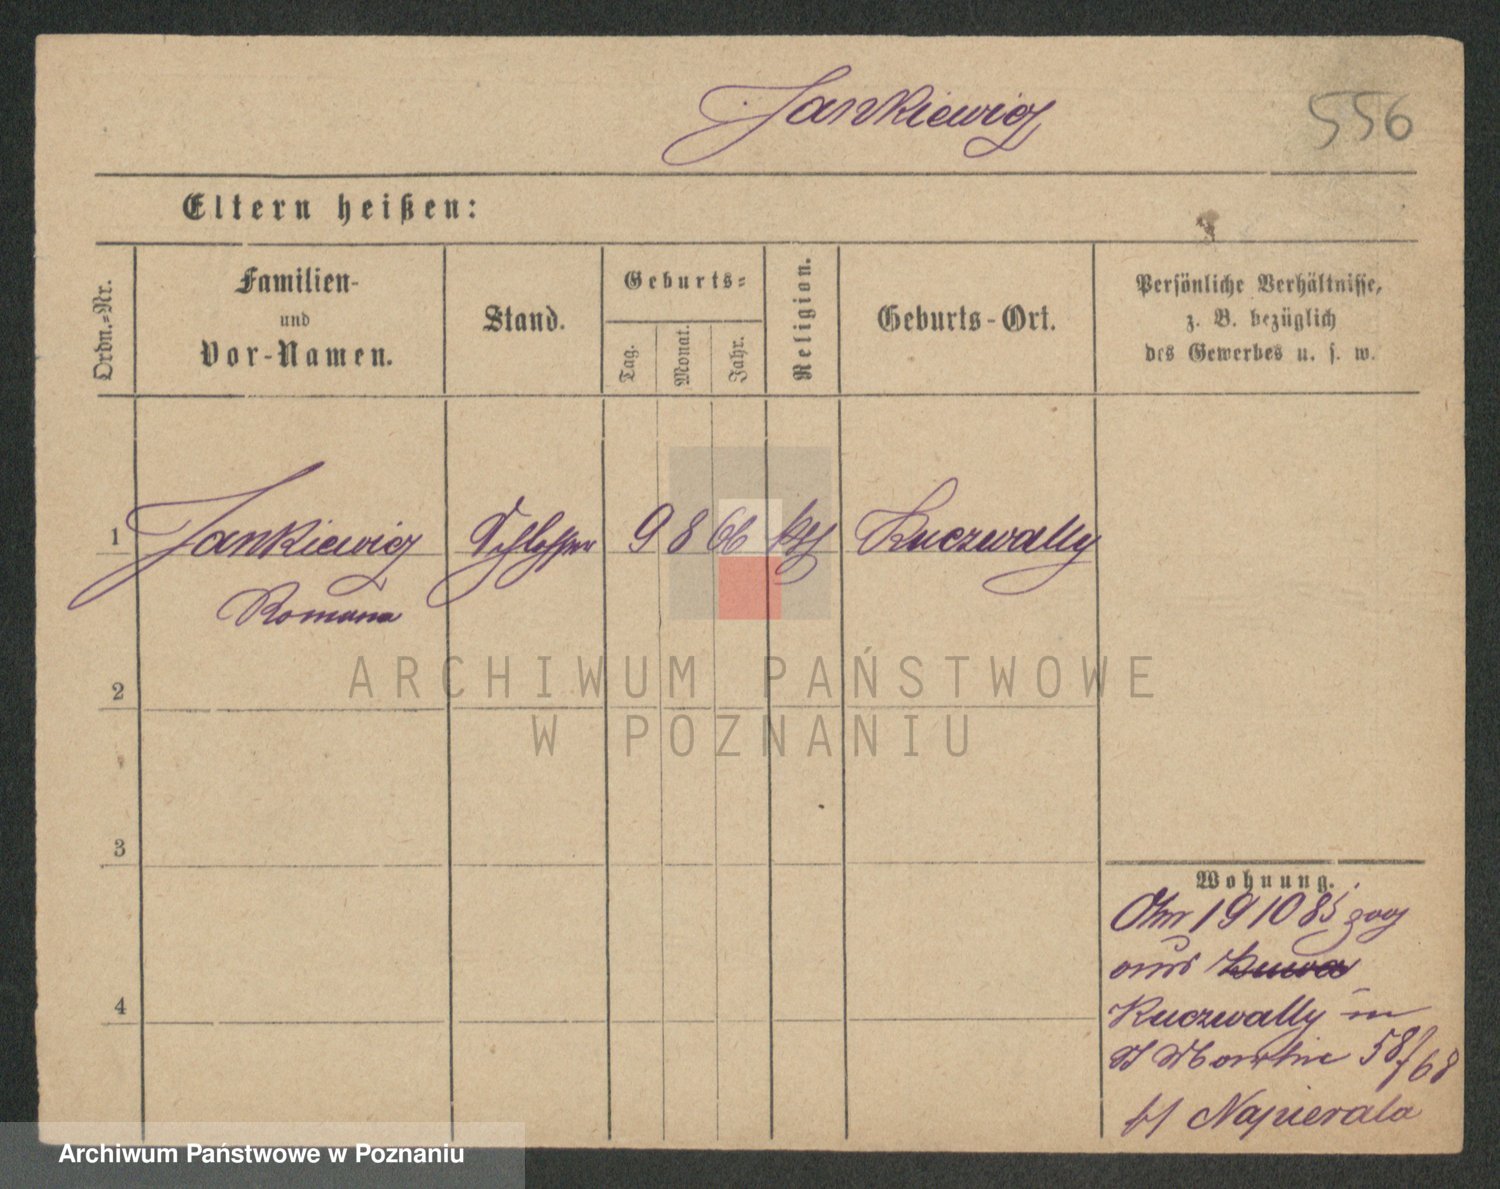 Jankiewicz
556
Eltern heißen:
Ordn.-Nr.
Familien-
und
Vor-Namen.
Stand.
Geburts-
Tag.
Monat.
Jahr.
Religion.
Geburts-Ort.
Persönliche Verhältnisse,
z. B. bezüglich
des Gewerbes u. s. w.
1 Jankiewicz Schlosser 9 8 66 kth Kuczwally
Romana
2
3
4
Wohnung.
19 10 85 zog
aus
Kuczwally in
St Martin 58/68
b/ Napierala
ARCHIWUM PAŃSTWOWE
W POZNANIU
Archiwum Państwowe w Poznaniu